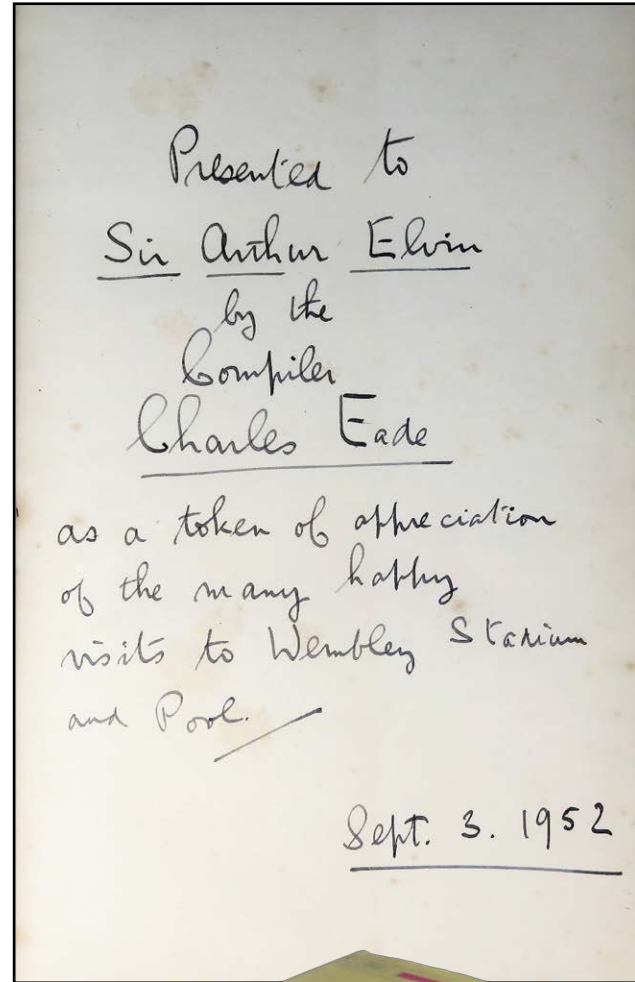 Presented to
Sir Arthur Elvin
by the
Compiler
Charles Eade
as a token of appreciation
of the many happy
visits to Wembley Stadium
and Pool.
Sept. 3. 1952